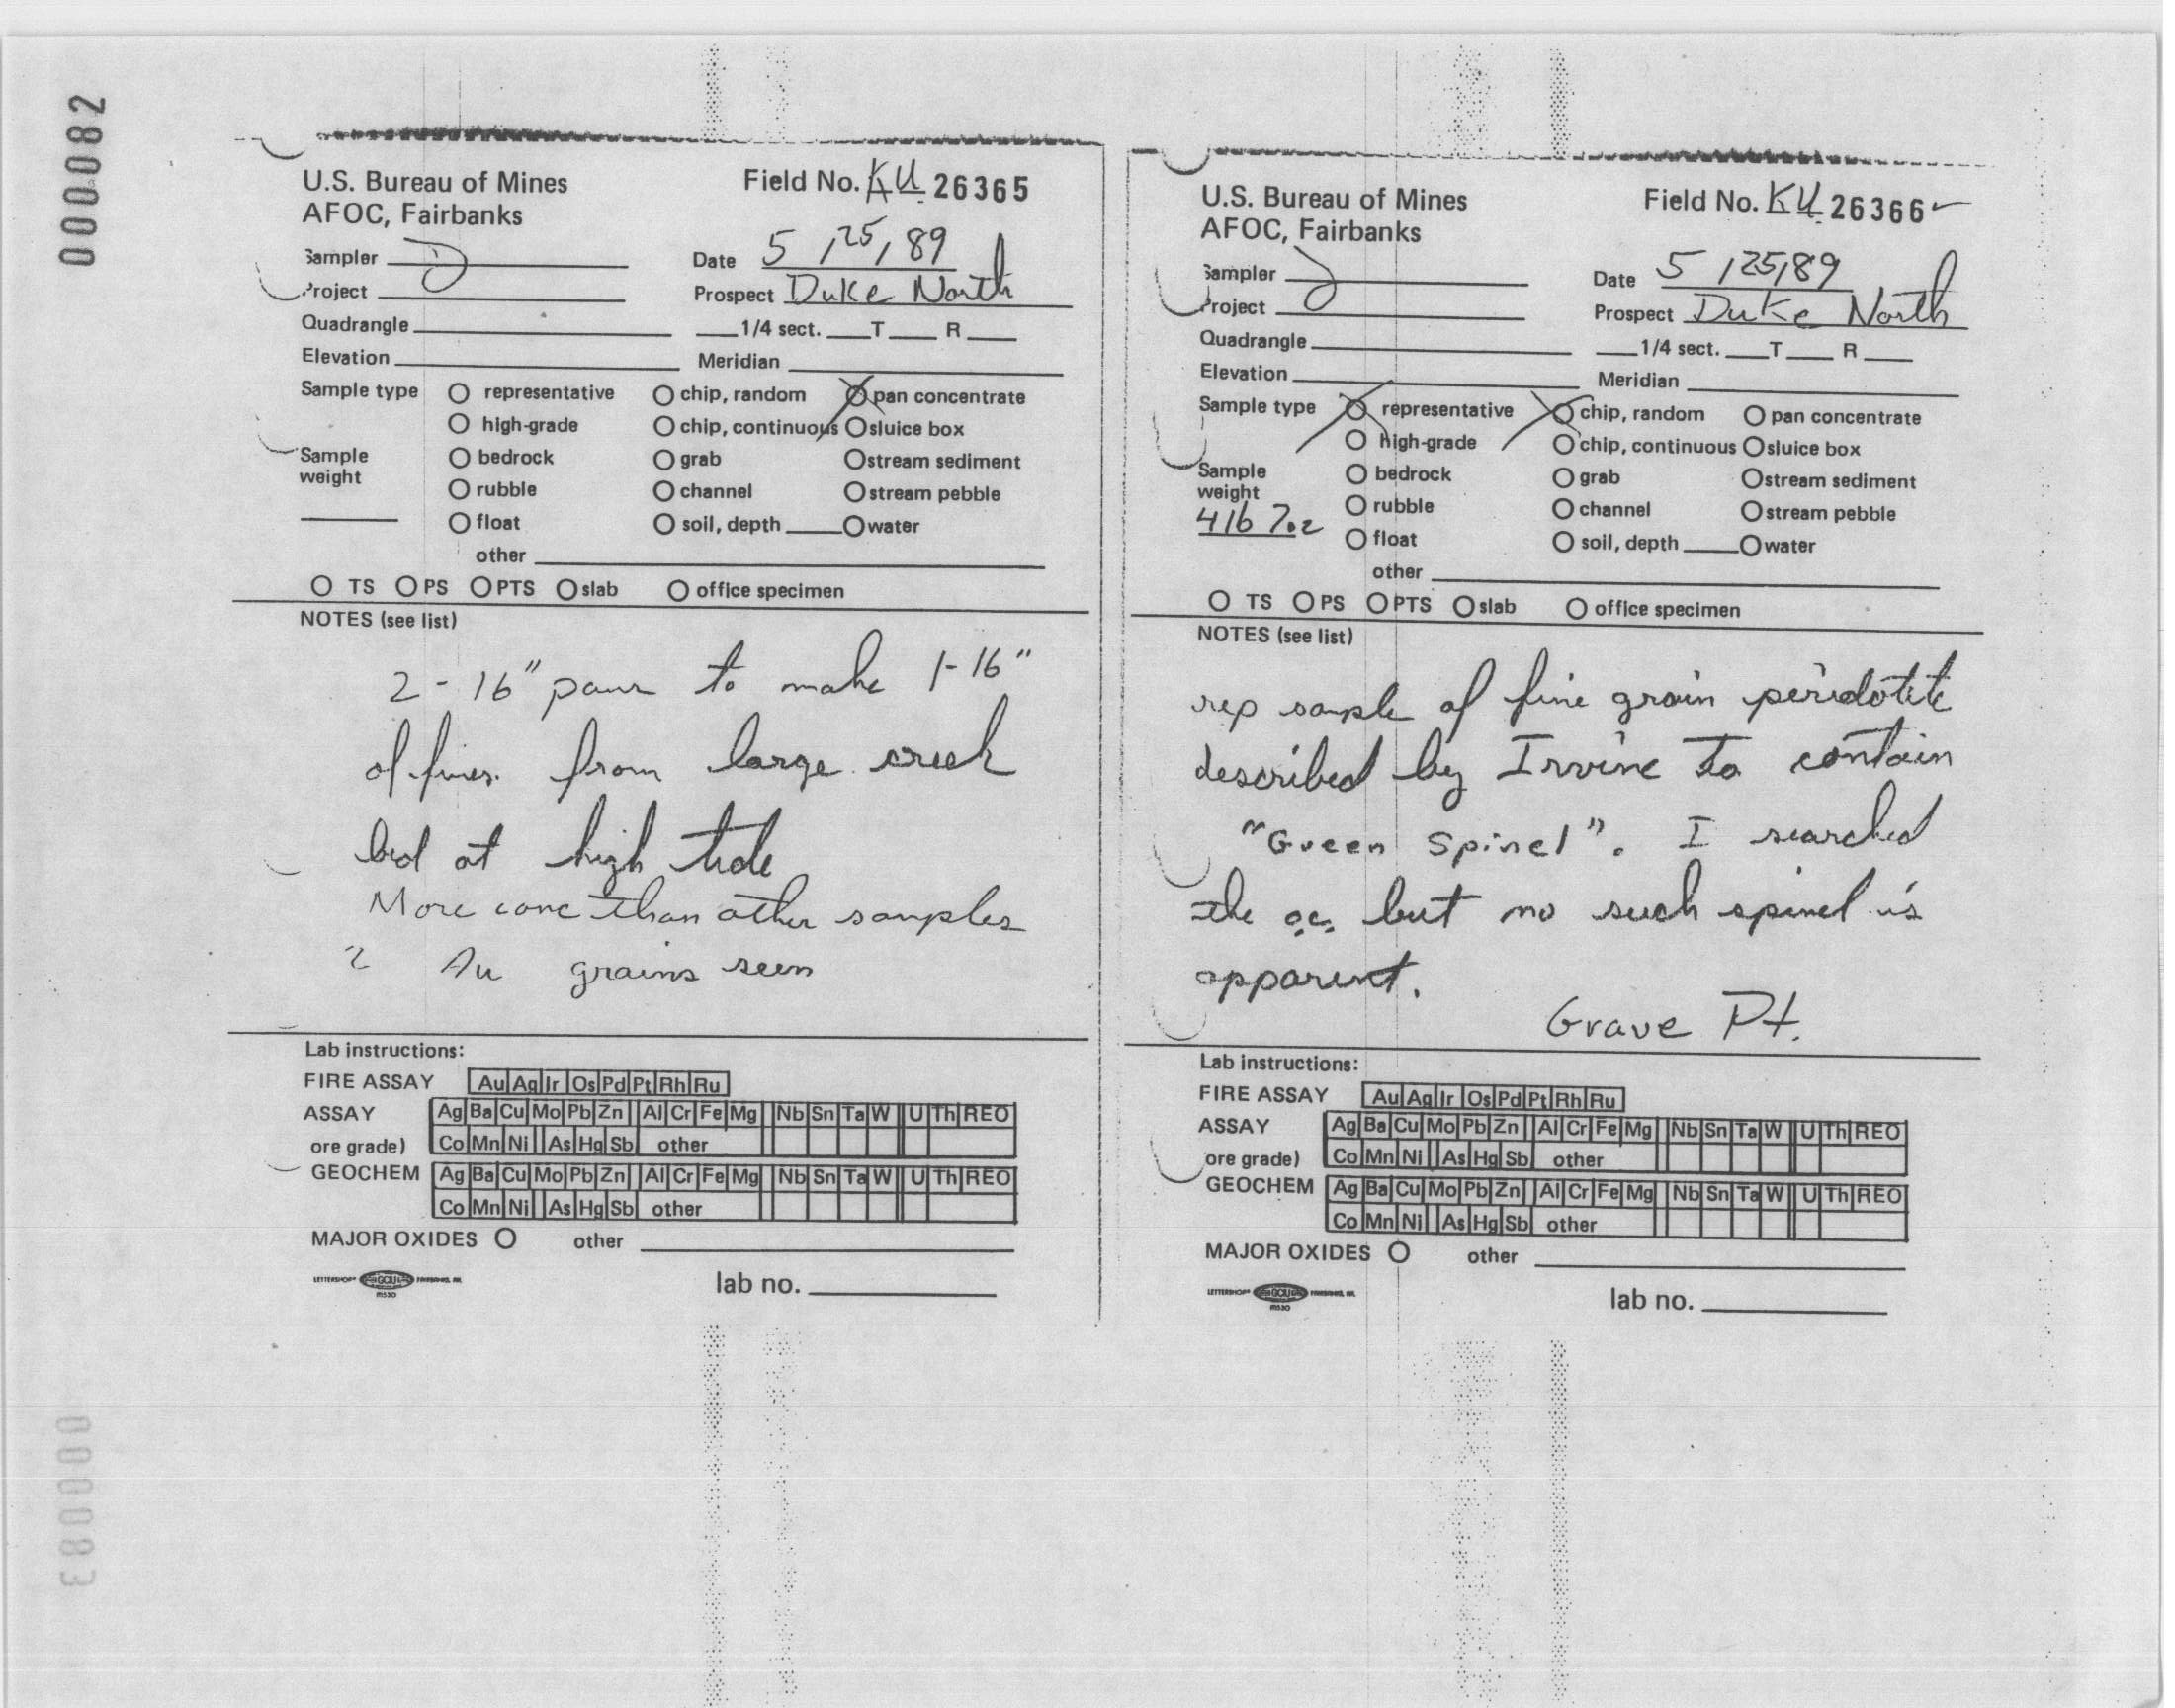 000082
U.S. Bureau of Mines
AFOC, Fairbanks
Field No. KU 26365
Sampler D
Date 5/25/89
Project
Prospect Duke North
Quadrangle
1/4 sect. T R
Elevation
Meridian
Sample type O representative O chip, random O pan concentrate
O high-grade O chip, continuous O sluice box
Sample weight O bedrock O grab O stream sediment
O rubble O channel O stream pebble
O float O soil, depth O water
other
O TS O PS O PTS O slab O office specimen
NOTES (see list)
2 - 16" pans to make 1-16"
of fines from large creek
bed at high tide
More conc than other samples
2 Au grains seen
Lab instructions:
FIRE ASSAY Au Ag Ir Os Pd Pt Rh Ru
ASSAY Ag Ba Cu Mo Pb Zn Al Cr Fe Mg Nb Sn Ta W U Th REO
ore grade) Co Mn Ni As Hg Sb other
GEOCHEM Ag Ba Cu Mo Pb Zn Al Cr Fe Mg Nb Sn Ta W U Th REO
Co Mn Ni As Hg Sb other
MAJOR OXIDES O other
LETTERSHOP GCIU FAIRBANKS, AK
lab no.
U.S. Bureau of Mines
AFOC, Fairbanks
Field No. KU 26366
Sampler
Date 5/25/89
Project
Prospect Duke North
Quadrangle
1/4 sect. T R
Elevation
Meridian
Sample type O representative O chip, random O pan concentrate
O high-grade O chip, continuous O sluice box
Sample weight O bedrock O grab O stream sediment
4lb 7oz O rubble O channel O stream pebble
O float O soil, depth O water
other
O TS O PS O PTS O slab O office specimen
NOTES (see list)
rep sample of fine grain peridotite
described by Irvine to contain
"Green Spinel". I searched
the o.c. but no such spinel is
apparent.
Grave Pt.
Lab instructions:
FIRE ASSAY Au Ag Ir Os Pd Pt Rh Ru
ASSAY Ag Ba Cu Mo Pb Zn Al Cr Fe Mg Nb Sn Ta W U Th REO
ore grade) Co Mn Ni As Hg Sb other
GEOCHEM Ag Ba Cu Mo Pb Zn Al Cr Fe Mg Nb Sn Ta W U Th REO
Co Mn Ni As Hg Sb other
MAJOR OXIDES O other
LETTERSHOP GCIU FAIRBANKS, AK
lab no.
000083